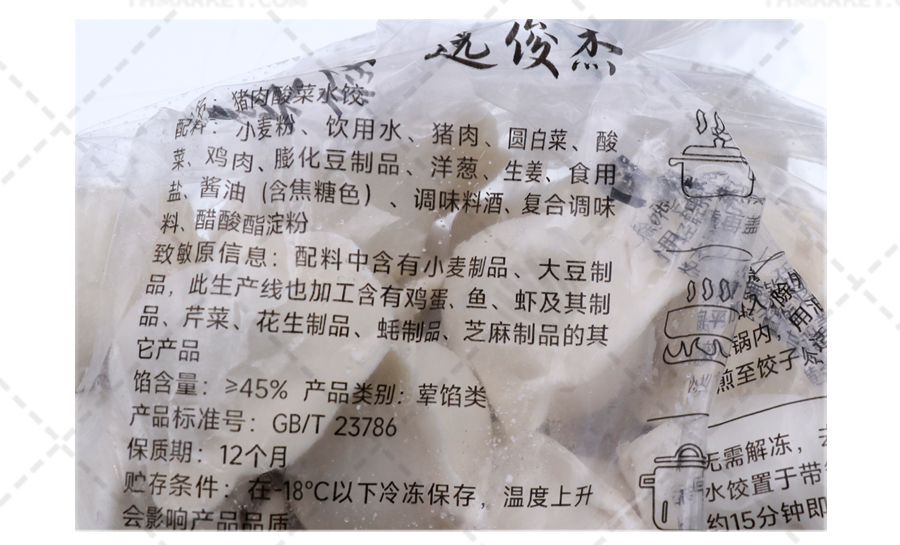 THMARKET.COM
THMARKET.COM
选俊杰
猪肉酸菜水饺
配料：小麦粉、饮用水、猪肉、圆白菜、酸
菜、鸡肉、膨化豆制品、洋葱、生姜、食用
盐、酱油（含焦糖色）、调味料酒、复合调味
料、醋酸酯淀粉
致敏原信息：配料中含有小麦制品、大豆制
品，此生产线也加工含有鸡蛋、鱼、虾及其制
品、芹菜、花生制品、蚝制品、芝麻制品的其
它产品
馅含量：≥45% 产品类别：荤馅类
产品标准号：GB/T 23786
保质期：12个月
贮存条件：在-18°C以下冷冻保存，温度上升
会影响产品品质
锅内
煎至饺子
无需解冻，
水饺置于带
约15分钟即